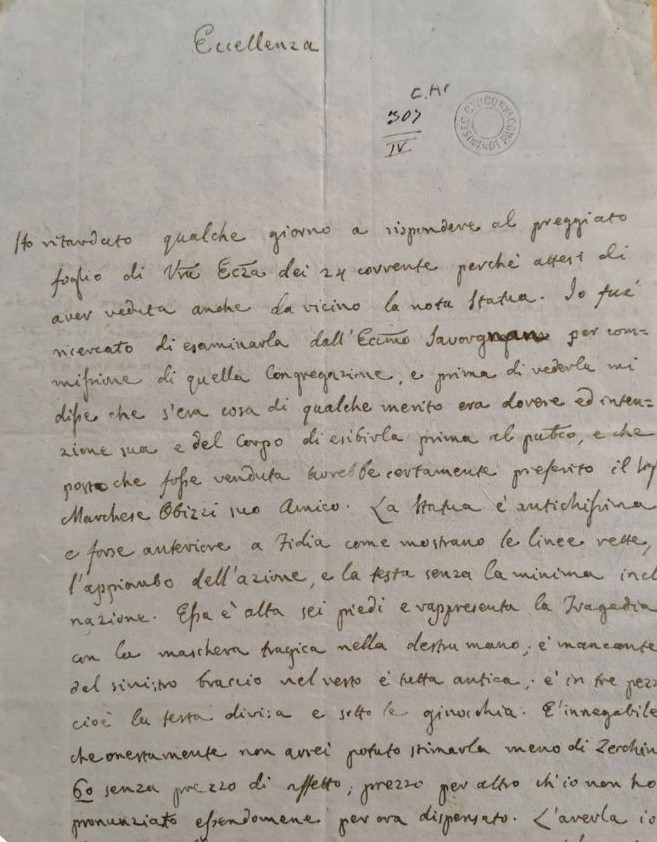 Eccellenza
C.Ar
307
IV
MUSEO CIVICO DI PADOVA
Ho ritardato qualche giorno a rispondere al preggiato
foglio di Vra Ecza dei 24 corrente perchè attesi di
aver veduta anche da vicino la nota Statua. Io fui
ricercato di esaminarla dall'Eccmo Savorgnan per com=
missione di quella Congregazione, e prima di vederla mi
disse che s'era cosa di qualche merito era dovere ed inten=
zione sua e del Corpo di esibirla prima al pubco, e che
posto che fosse venduta avrebbe certamente preferito il
Marchese Obizzi suo Amico. La Statua è antichissima
e forse anteriore a Fidia come mostrano le linee rette,
l'appiombo dell'azione, e la testa senza la minima incl
nazione. Essa è alta sei piedi e rappresenta la Tragedia
con la maschera tragica nella destra mano; è mancante
del sinistro braccio nel resto è tutta antica; è in tre pezz
cioè la testa divisa e sotto le ginocchia. E' innegabile
che onestamente non avrei potuto stimarla meno di Zecchin
60 senza prezzo di affetto; prezzo per altro ch'io non ho
pronunziato essendomene per ora dispensato. L'averla io